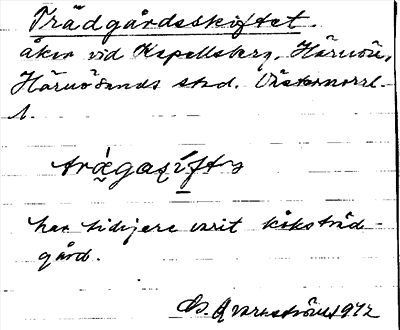 Trädgårdsskiftet.
åker vid Kapellsberg, Härnön,
Härnösands stad. Västernorrl.
l.
har tidigare varit köksträd-
gård.
1972